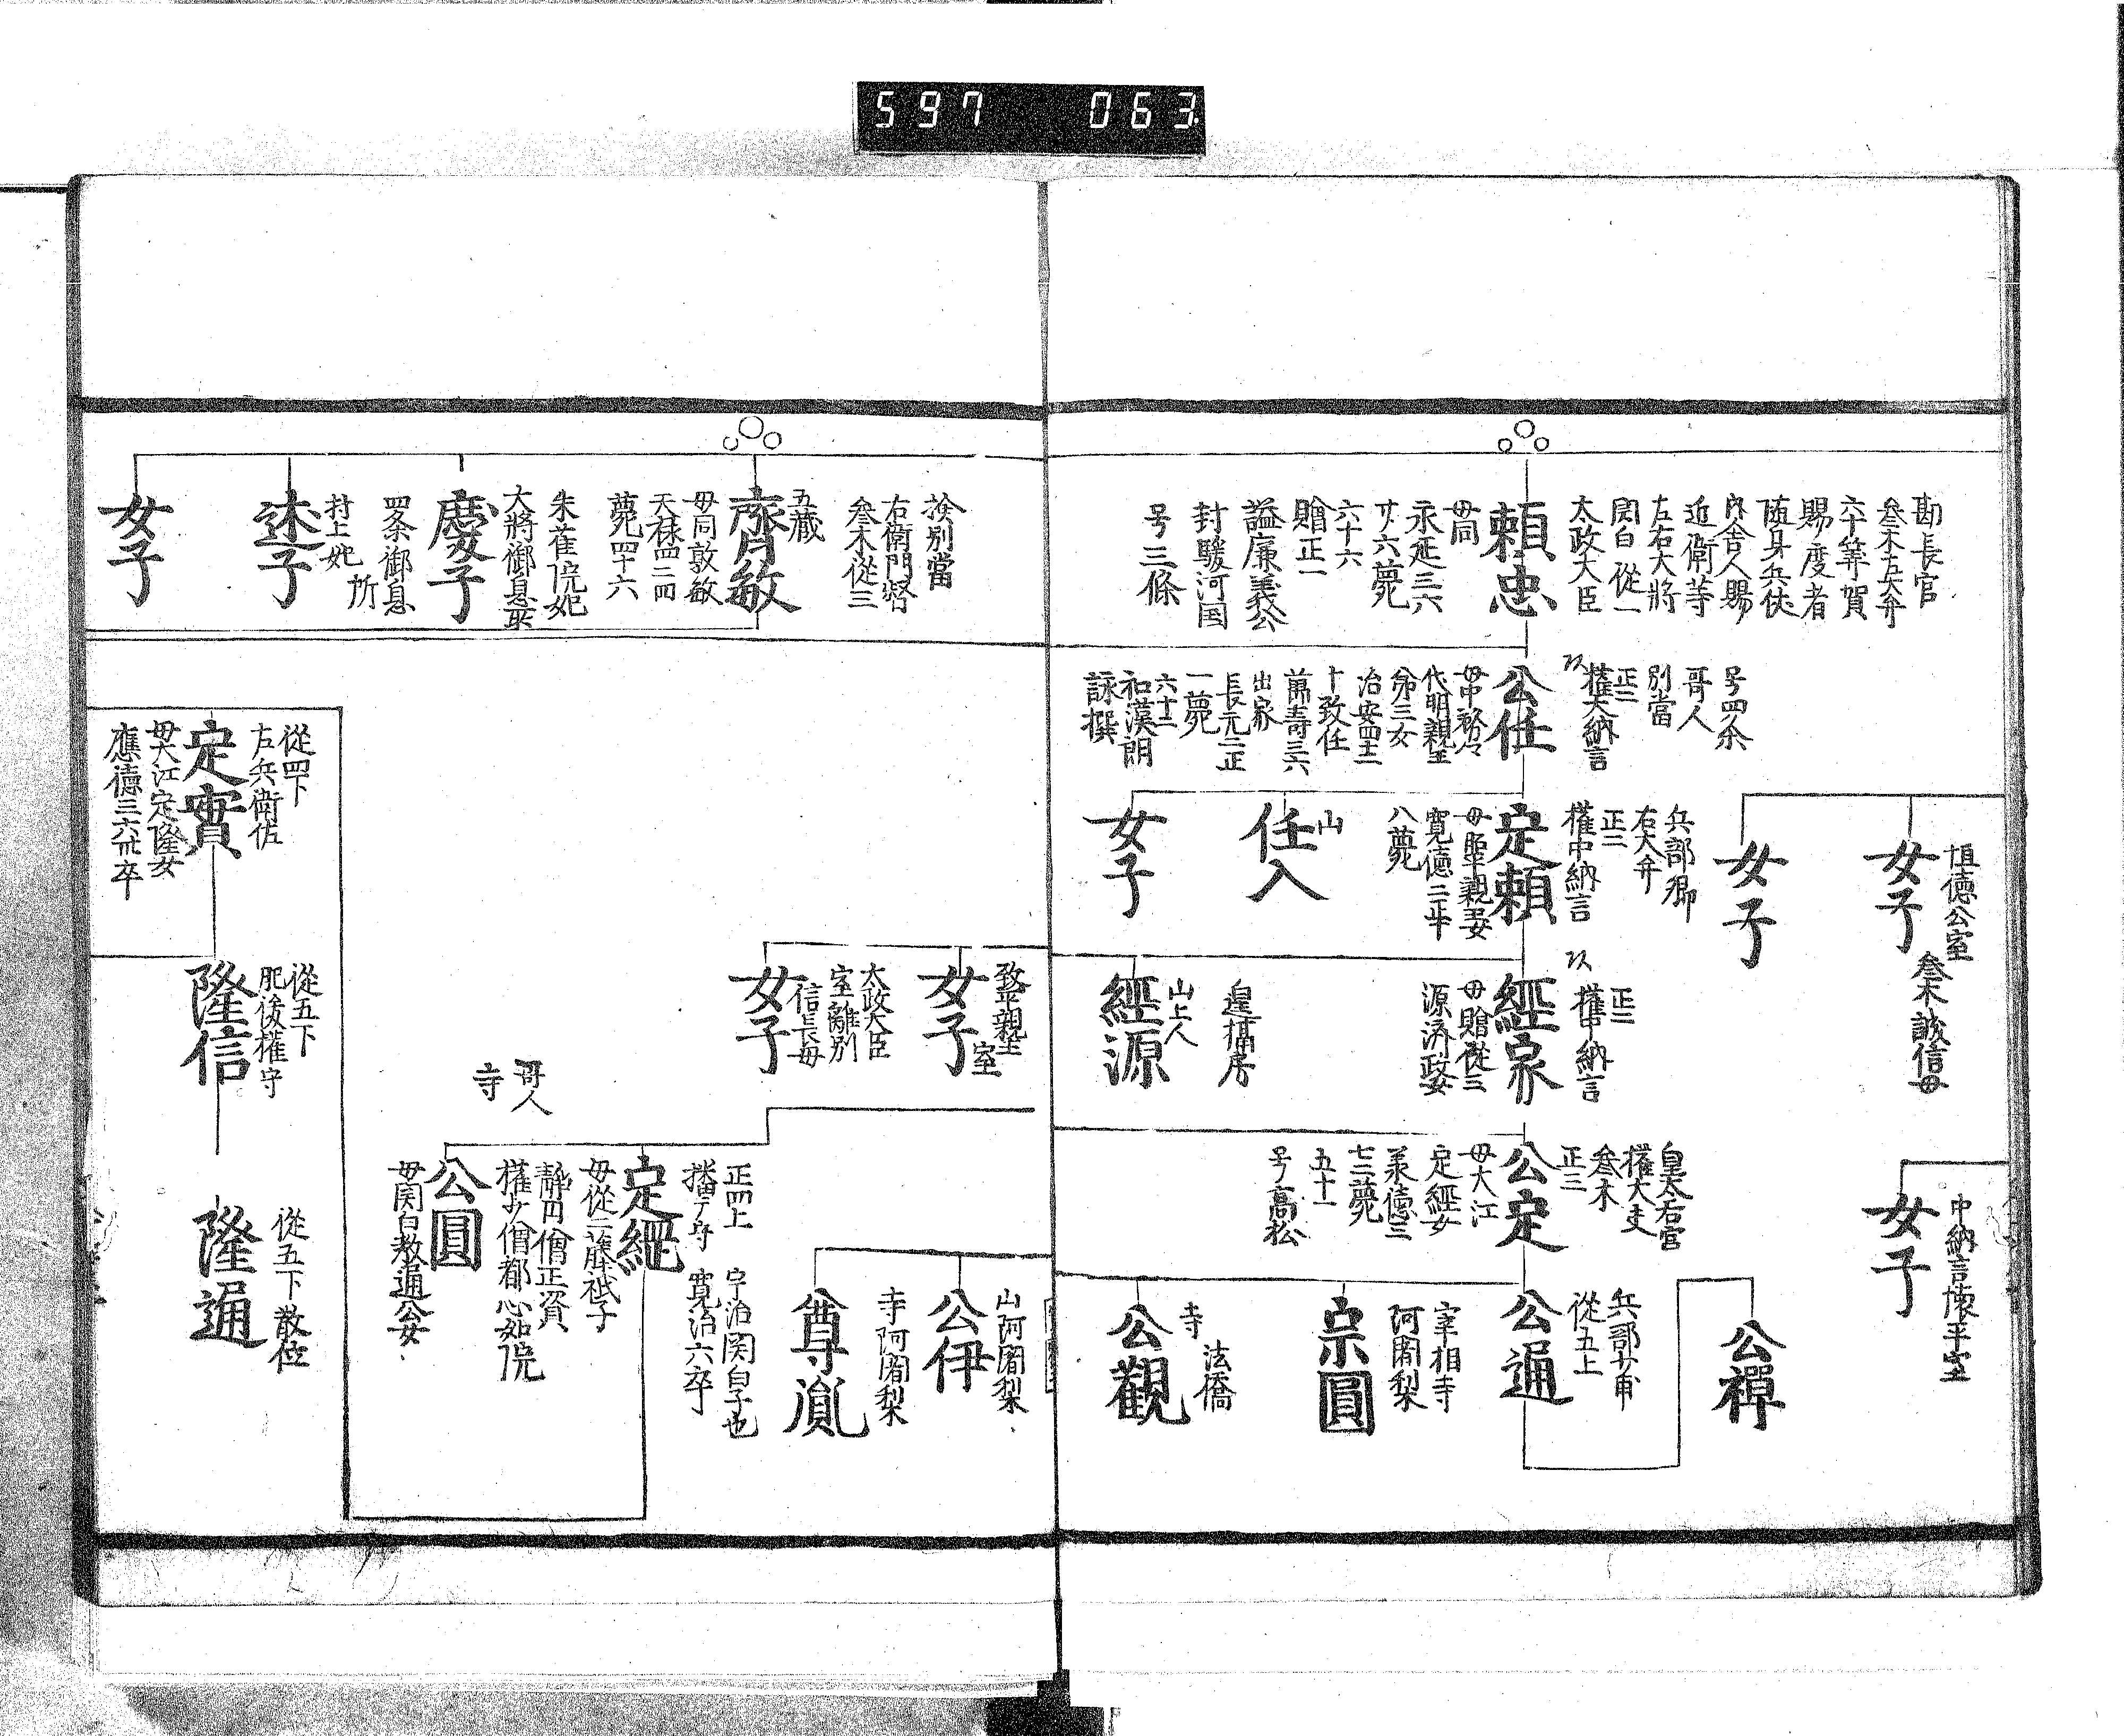 597 063
勘長官
叅木左大弁
六十筭賀
賜度者
随身兵仗
内舎人賜
近衛等
左右大將
関白從一
太政大臣
頼忠
母同
永延三六
廿六薨
六十六
贈正一
謚廉義公
封駿河国
号三條
号四条
哥人
別當
正二
権大納言
公任
母中務々
代明親王
第三女
治安四十二
十致仕
萬壽三六
出家
長元二正
一薨
六十二
和漢朗
詠撰
恒徳公室
叅木誠信母
女子
女子
兵部卿
右大弁
正二
権中納言
定頼
寛徳二正十
八薨
山
任入
女子
正三
権中納言
經家
母贈從三
源済政女
山上人
經源
中納言懐平室
女子
皇太后宮
権大夫
叅木
正三
公定
母大江
定經女
承徳三
七二薨
五十一
号高松
公禅
兵部少甫
從五上
公通
宰相寺
阿闍梨
宗圓
寺 法橋
公觀
按別當
右衛門督
叅木從三
五蔵
齊敏
母同敦敏
天禄四二四
薨四十六
朱雀院妃
大將御息所
慶子
四条御息
所
村上妃
述子
女子
致平親王
室
女子
太政大臣
室離別
信長母
女子
山阿闍梨
公伊
寺阿闍梨
尊胤
正四上
播广守
宇治関白子也
寛治六卒
定綱
母從二藤祇子
静円僧正資
権少僧都心如院
公圓
母関白教通公女
哥人
寺
從四下
左兵衛佐
定實
母大江定隆女
應徳三六卅卒
從五下
肥後權守
隆信
從五下散位
隆通